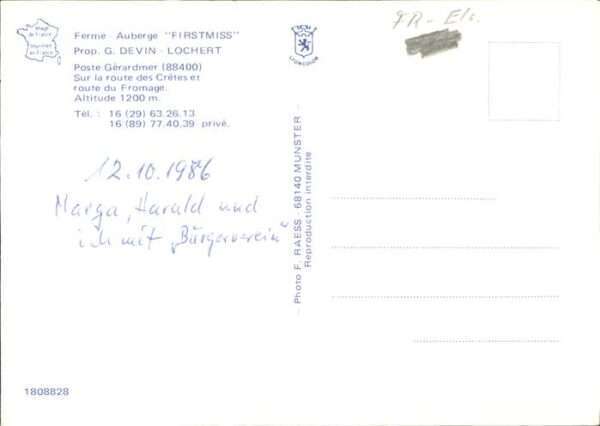 Ferme - Auberge "FIRSTMISS"
Prop. G. DEVIN - LOCHERT
Poste Gérardmer (88400)
Sur la route des Crêtes et
route du Fromage.
Altitude 1200 m.
Tél. : 16 (29) 63.26.13
16 (89) 77.40.39 privé.
12.10.1986
Marga, Harald und
ich mit „Bürgerverein"
1808828
LYONCOLOR
FR - Els.
– Photo F. RAESS - 68140 MUNSTER –
Reproduction interdite